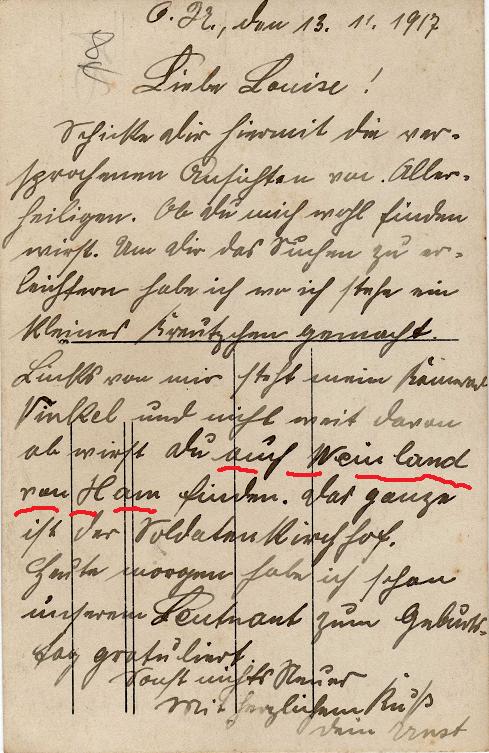 O. U., den 13. 11. 1917
Liebe Louise!
Schicke dir hiermit die ver-
sprochenen Ansichten von Aller-
heiligen. Ob du mich wohl finden
wirst. Um dir das Suchen zu er-
leichtern habe ich wo ich stehe ein
kleines Kreutzchen gemacht.
Links von mir steht mein Kamerad
Vinkel und nicht weit davon
ab wirst du auch Weinland
von Ham finden. Das ganze
ist der Soldatenkirchhof.
Heute morgen habe ich schon
unserem Leutnant zum Geburts-
tag gratuliert.
Sonst nichts Neues
Mit herzlichem Kuß
dein Ernst